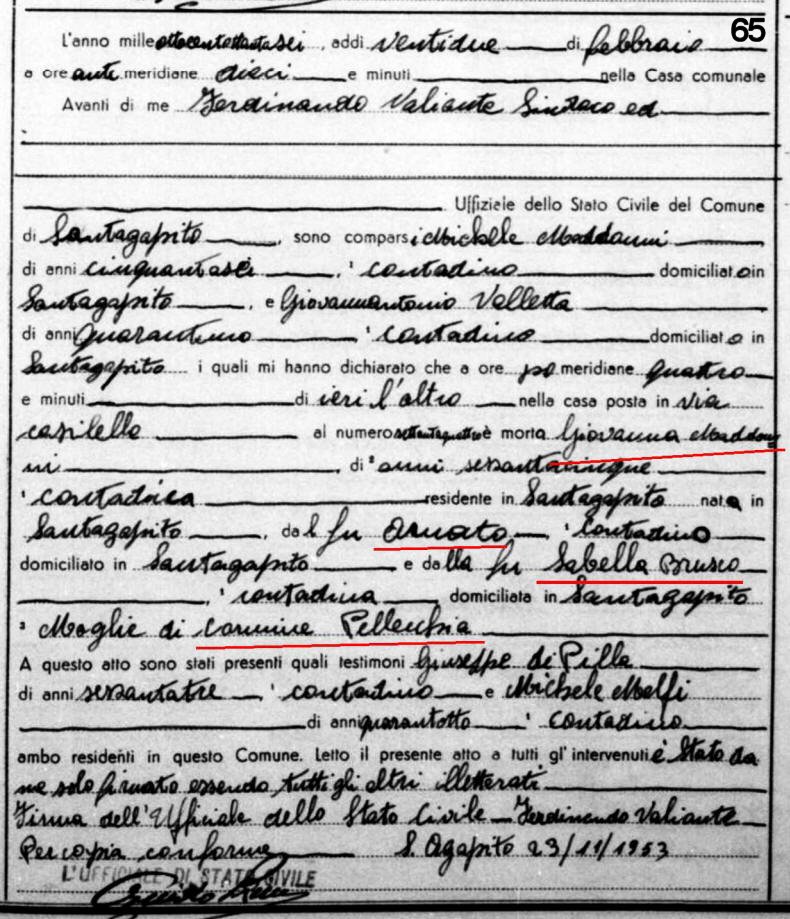 65
L'anno milleottocentottantasei, addì ventidue di febbraio
a ore ante meridiane dieci e minuti nella Casa comunale
Avanti di me Ferdinando Valiante Sindaco ed
Uffiziale dello Stato Civile del Comune
di Santagapito, sono comparsi Michele Maddonni
di anni cinquantasei, contadino domiciliato in
Santagapito, e Giovannantonio Valletta
di anni quarantuno contadino domiciliato in
Santagapito i quali mi hanno dichiarato che a ore po meridiane quattro
e minuti di ieri l'altro nella casa posta in via
casilello al numero settantaquattro è morta Giovanna Maddon
ni, di anni sessantacinque
contadina residente in Santagapito nata in
Santagapito, dal fu Donato, contadino
domiciliato in Santagapito e dalla fu Sabella Brusco
, contadina domiciliata in Santagapito
Moglie di Carmine Pellecchia
A questo atto sono stati presenti quali testimoni Giuseppe di Pilla
di anni sessantatre, contadino e Michele Melfi
di anni quarantotto, contadino
ambo residenti in questo Comune. Letto il presente atto a tutti gl' intervenuti è stato da
me solo firmato essendo tutti gli altri illetterati
Firma dell'Ufficiale dello Stato Civile Ferdinando Valiante
Per copia conforme S. Agapito 23/11/1953
L'UFFICIALE DI STATO CIVILE